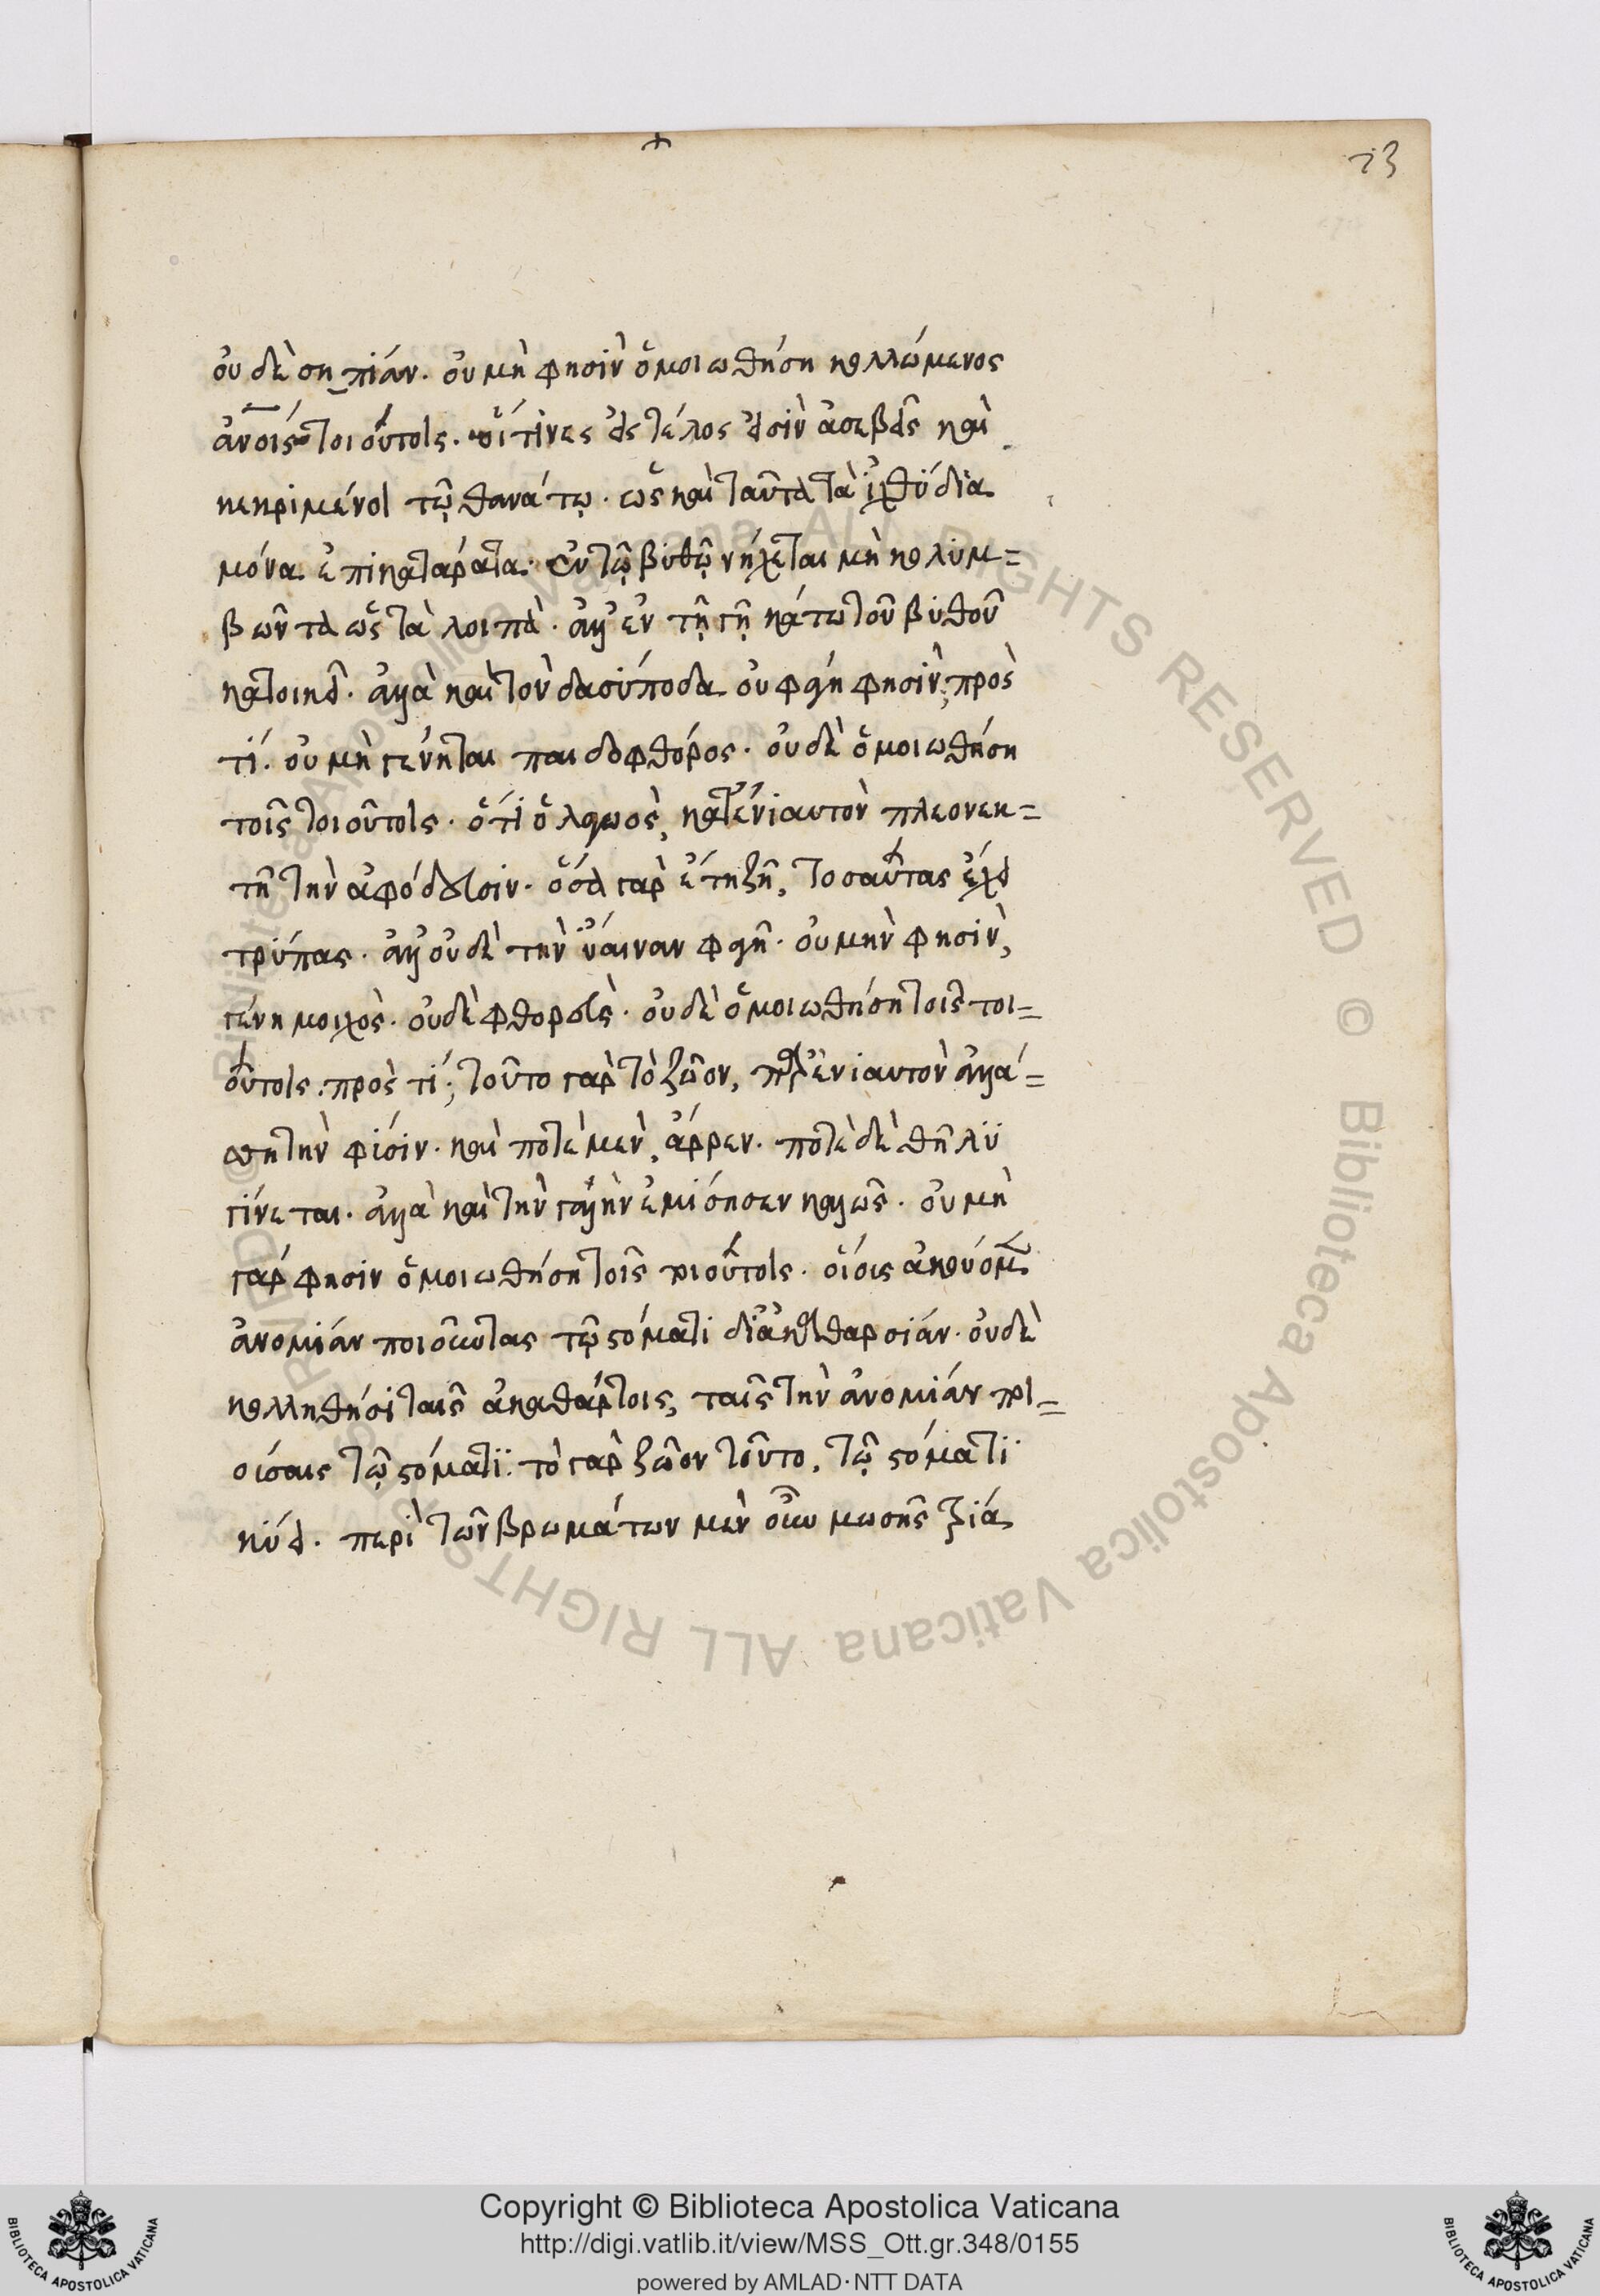 73
οὐδὲ σηπίαν. οὐ μὴ φησὶν ὁμοιωθήση κολλώμενος
ἀνοῖς τοιούτοις. οἵτινες εἰς τέλος εἰσὶν ἀσεβεῖς καὶ
κεκριμένοι τῷ θανάτῳ. ὡς καὶ ταῦτα τὰ ἰχθύδια
μόνα ἐπικατάρατα ἐν τῷ βυθῷ νήχεται μὴ κολυμ=
βῶντα ὡς τὰ λοιπὰ. ἀλλ' ἐν τῇ γῇ κάτω τοῦ βυθοῦ
κατοικεῖ. ἀλλὰ καὶ τὸν δασύποδα οὐ φάγη φησὶν, πρὸς
τί. οὐ μὴ γένηται παιδοφθόρος. οὐδὲ ὁμοιωθήση
τοῖς τοιούτοις. ὅτι ὁ λαγωὸς, κατ' ἐνιαυτὸν πλεονεκ=
τῆ τὴν ἀφόδευσιν. ὅσα γὰρ ἔτη ζῆ, τοσαύτας ἔχει
τρύπας. ἀλλ' οὐδὲ τὴν ὕαιναν φάγη. οὐ μὴν φησὶν,
γένη μοιχὸς. οὐδὲ φθορεὺς. οὐδὲ ὁμοιωθήση τοῖς τοι=
ούτοις. πρὸς τί; τοῦτο γὰρ τὸ ζῶον, παρ' ἐνιαυτὸν ἀλλά=
σση τὴν φύσιν. καὶ ποτὲ μὲν, ἄρρεν. ποτὲ δὲ θῆλυ
γίνεται. ἀλλὰ καὶ τὴν γαλῆν ἐμίσησεν καλῶς. οὐ μὴ
γάρ φησιν ὁμοιωθήση τοῖς τοιούτοις. οἵους ἀκούομεν
ἀνομίαν ποιοῦντας τῷ στόματι δι' ἀκαθαρσίαν. οὐδὲ
κολληθήσι ταῖς ἀκαθάρτοις, ταῖς τὴν ἀνομίαν ποι=
ούσαις τῷ στόματι. τὸ γὰρ ζῶον τοῦτο, τῷ στόματι
κύει. περὶ τῶν βρωμάτων μὲν οὖν μωσῆς τρία
Copyright © Biblioteca Apostolica Vaticana
http://digi.vatlib.it/view/MSS_Ott.gr.348/0155
powered by AMLAD·NTT DATA
BIBLIOTECA APOSTOLICA VATICANA
BIBLIOTECA APOSTOLICA VATICANA